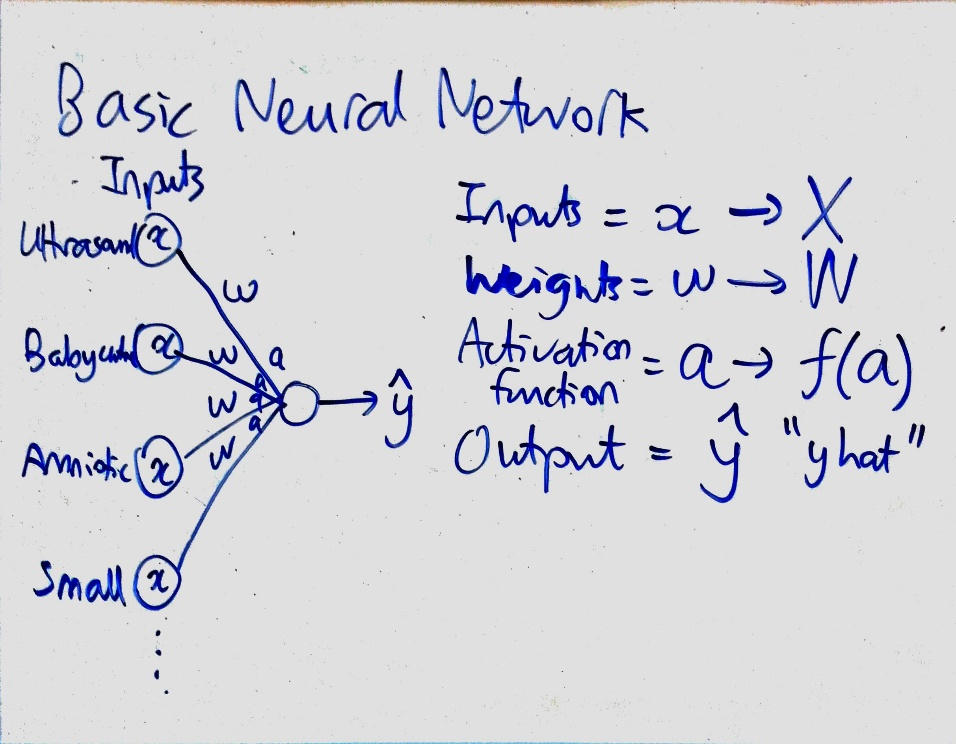 Basic Neural Network
Inputs
Ultrasound x
w
Baby x w a
w a
a
Amniotic x w a
Small x
ŷ
Inputs = x → X
Weights = w → W
Activation function = a → f(a)
Output = ŷ "y hat"